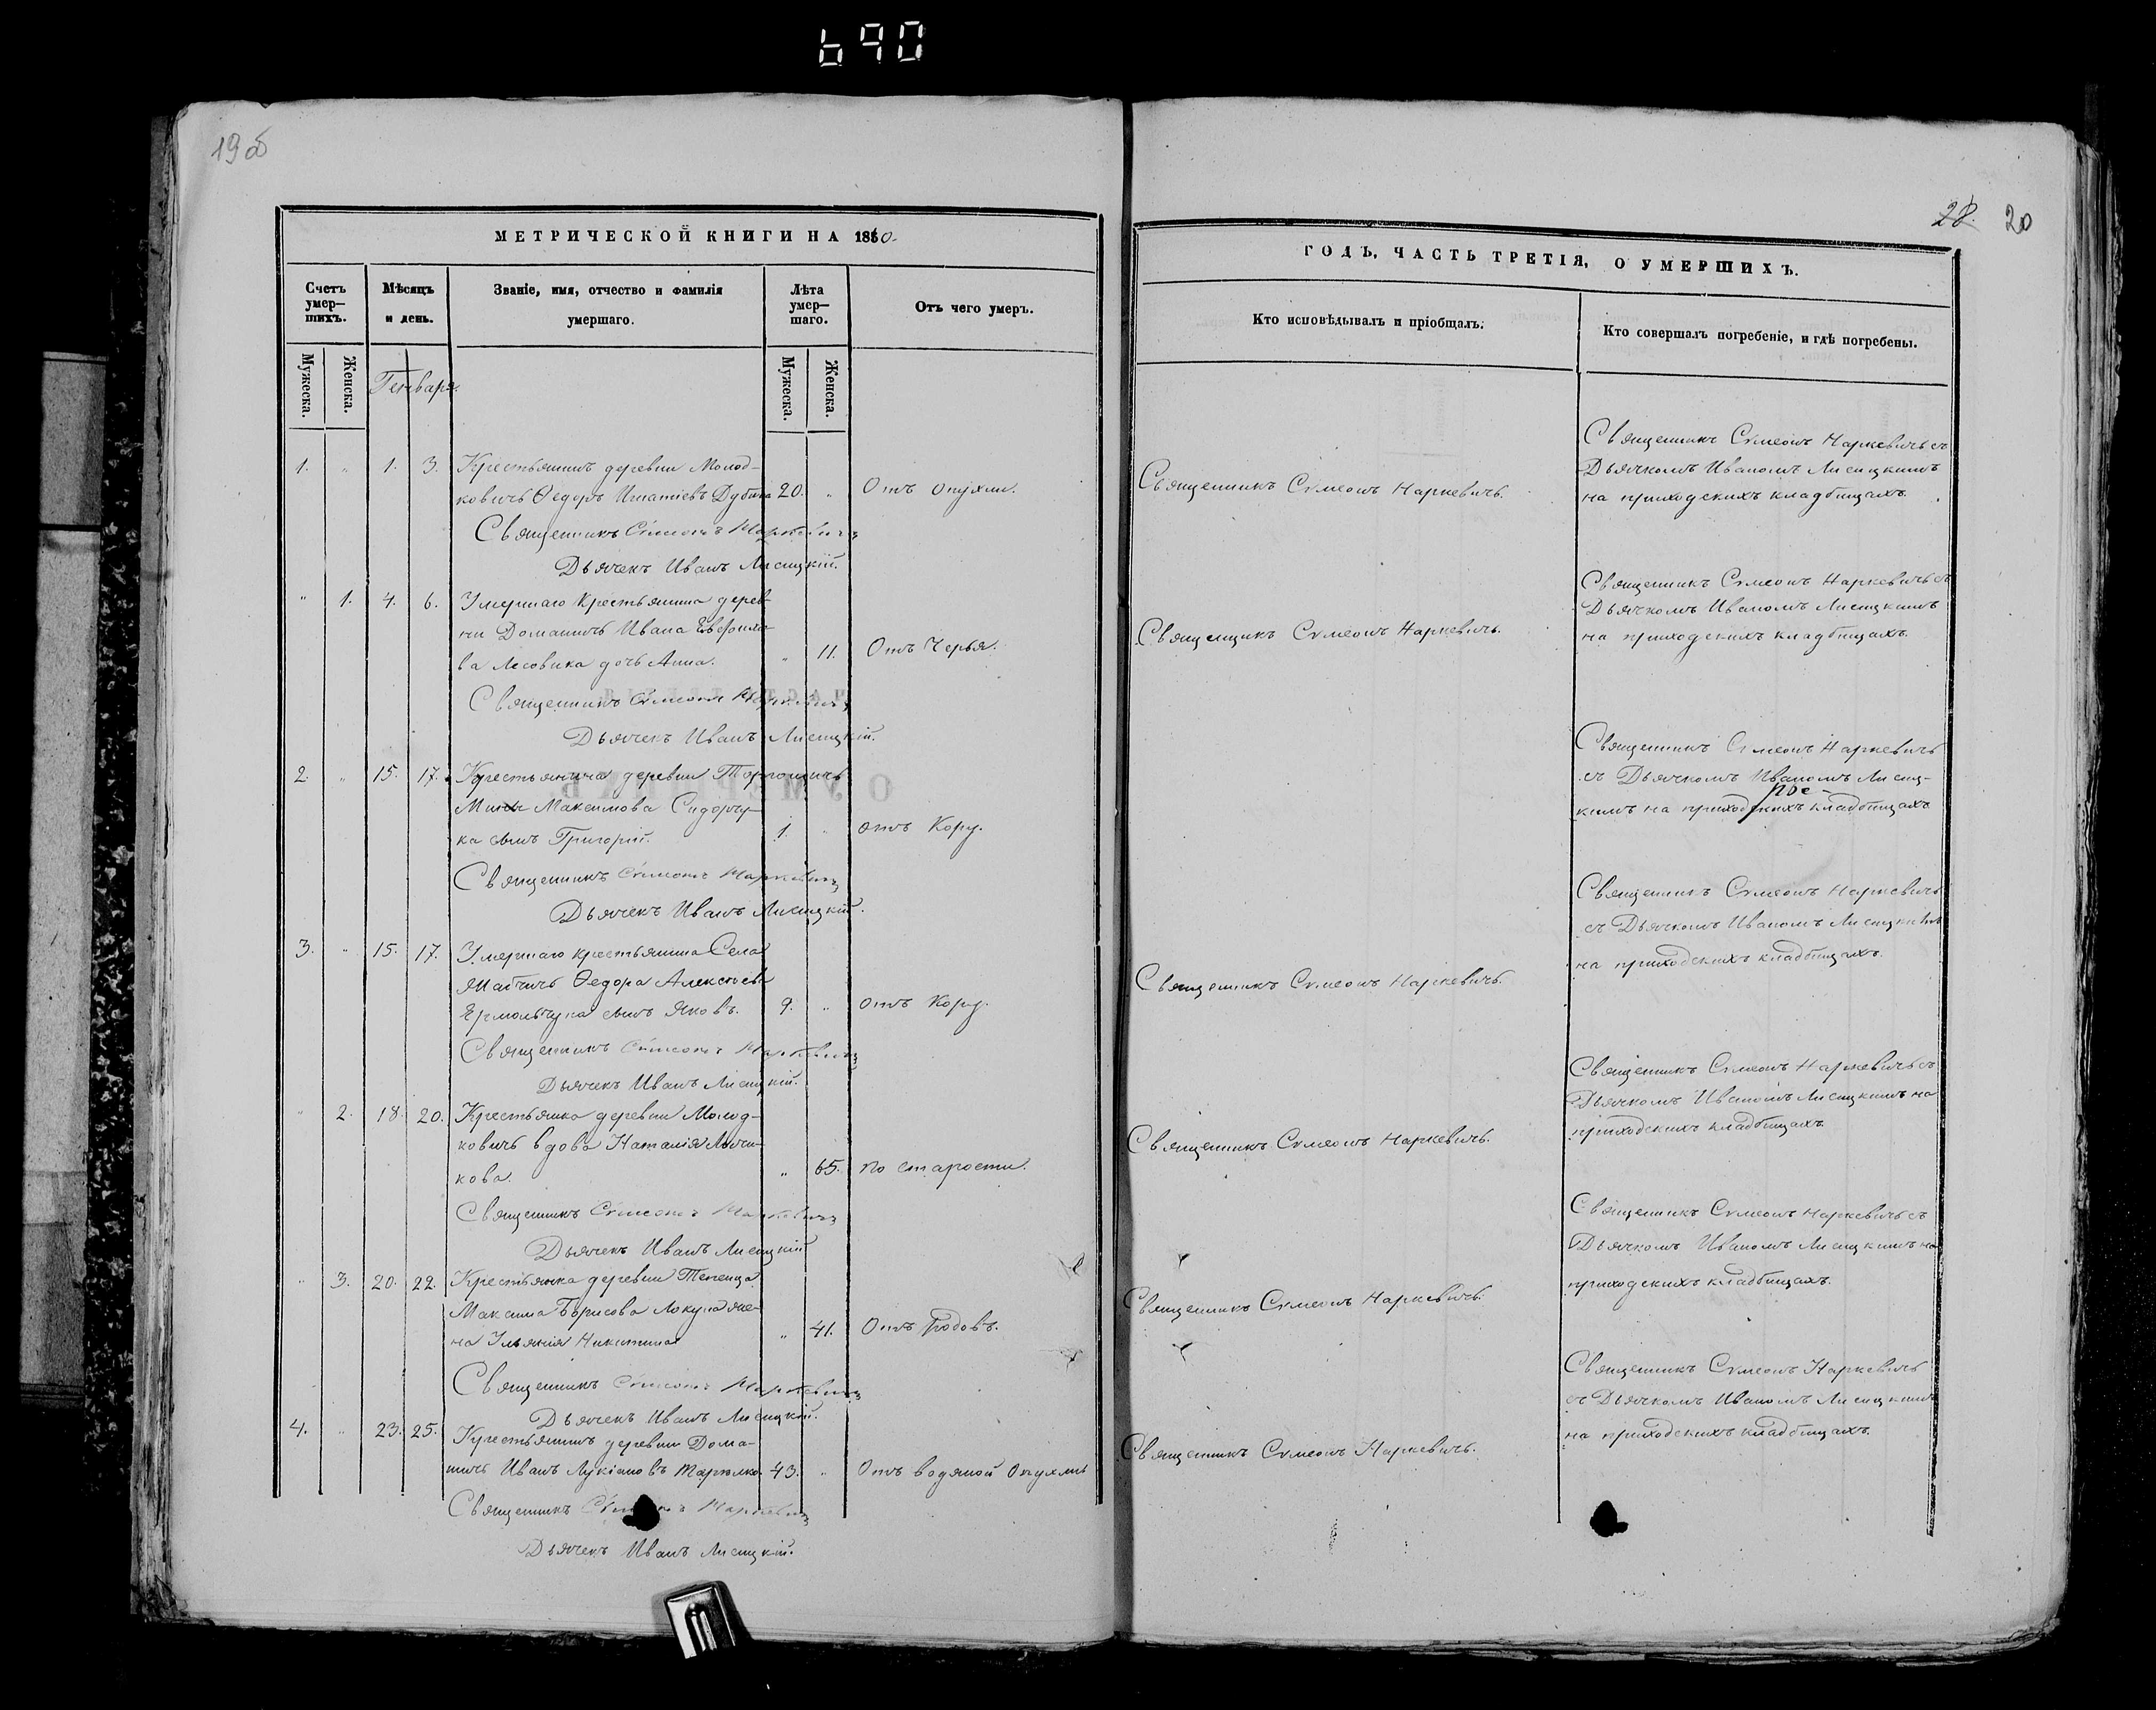 690
19 об
28. 20
МЕТРИЧЕСКОЙ КНИГИ НА 1860.
Счетъ умер—шихъ.
Мѣсяцъ и день.
Званіе, имя, отчество и фамилія умершаго.
Лѣта умер—шаго.
Отъ чего умеръ.
Мужеска.
Женска.
Генваря.
Мужеска.
Женска.
1. " 1. 3. Крестьянинъ деревни Молод-
ковичь Ѳедоръ Игнатіевъ Дубина 20. " Отъ опухли.
Священникъ Сѵмеонъ Наркевичъ
Дьячекъ Иванъ Лисицкій.
" 1. 4. 6. Умершаго крестьянина дерев-
ни Доманичь Ивана
ва Лесовика дочь Анна. " 11. Отъ Черья.
Священникъ Сѵмеонъ Наркевичъ
Дьячекъ Иванъ Лисицкій.
2. " 15. 17. Крестьянина деревни
Максимова Сидорчу-
ка сынъ Григорій. 1. " отъ Кору.
Священникъ Сѵмеонъ Наркевичъ
Дьячекъ Иванъ Лисицкій.
3. " 15. 17. Умершаго крестьянина Села
Ѳедора Алексѣева
Ярмольчука сынъ Яковъ. 9. " отъ Кору.
Священникъ Сѵмеонъ Наркевичъ
Дьячекъ Иванъ Лисицкій.
" 2. 18. 20. Крестьянка деревни Молод-
ковичь вдова Наталія
кова. " 65. по старости.
Священникъ Сѵмеонъ Наркевичъ
Дьячекъ Иванъ Лисицкій
" 3. 20. 22. Крестьянка деревни
Максима Борисова же-
на Никитина " 41. Отъ Родовъ.
Священникъ Сѵмеонъ Наркевичъ
Дьячекъ Иванъ Лисицкій.
4. " 23. 25. Крестьянинъ деревни Дома-
ничь Иванъ Лукіановъ 43. " Отъ водяной опухли
Священникъ Наркевичъ
Дьячекъ Иванъ Лисицкій.
ГОДЪ, ЧАСТЬ ТРЕТІЯ, О УМЕРШИХЪ.
Кто исповѣдывалъ и пріобщалъ.
Кто совершалъ погребеніе, и гдѣ погребены.
Священникъ Сѵмеонъ Наркевичъ.
Священникъ Сѵмеонъ Наркевичъ съ
Дьячкомъ Иваномъ Лисицкимъ
на приходскихъ кладбищахъ.
Священникъ Сѵмеонъ Наркевичъ.
Священникъ Сѵмеонъ Наркевичъ съ
Дьячкомъ Иваномъ Лисицкимъ
на приходскихъ кладбищахъ.
Священникъ Сѵмеонъ Наркевичъ
съ Дьячкомъ Иваномъ Лисиц-
кимъ на приходскихъ кладбищахъ
Священникъ Сѵмеонъ Наркевичъ.
Священникъ Сѵмеонъ Наркевичъ
съ Дьячкомъ Иваномъ Лисицкимъ
на приходскихъ кладбищахъ.
Священникъ Сѵмеонъ Наркевичъ.
Священникъ Сѵмеонъ Наркевичъ съ
Дьячкомъ Иваномъ Лисицкимъ на
приходскихъ кладбищахъ.
Священникъ Сѵмеонъ Наркевичъ.
Священникъ Сѵмеонъ Наркевичъ съ
Дьячкомъ Иваномъ Лисицкимъ на
приходскихъ кладбищахъ.
Священникъ Сѵмеонъ Наркевичъ.
Священникъ Сѵмеонъ Наркевичъ
съ Дьячкомъ Иваномъ Лисицкимъ
на приходскихъ кладбищахъ.